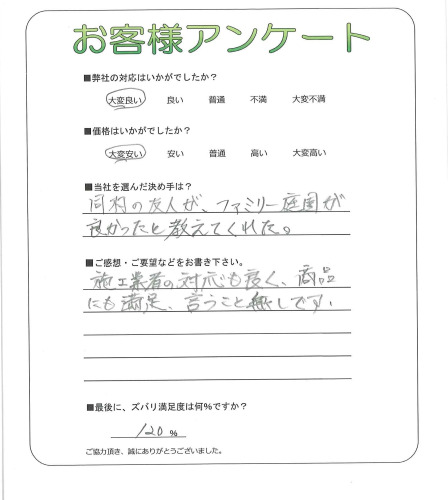 お客様アンケート
■弊社の対応はいかがでしたか？
大変良い 良い 普通 不満 大変不満
■価格はいかがでしたか？
大変安い 安い 普通 高い 大変高い
■当社を選んだ決め手は？
同村の友人が、ファミリー庭園が
良かったと教えてくれた。
■ご感想・ご要望などをお書き下さい。
施工業者の対応も良く、商品
にも満足、言うこと無しです。
■最後に、ズバリ満足度は何％ですか？
120 %
ご協力頂き、誠にありがとうございました。